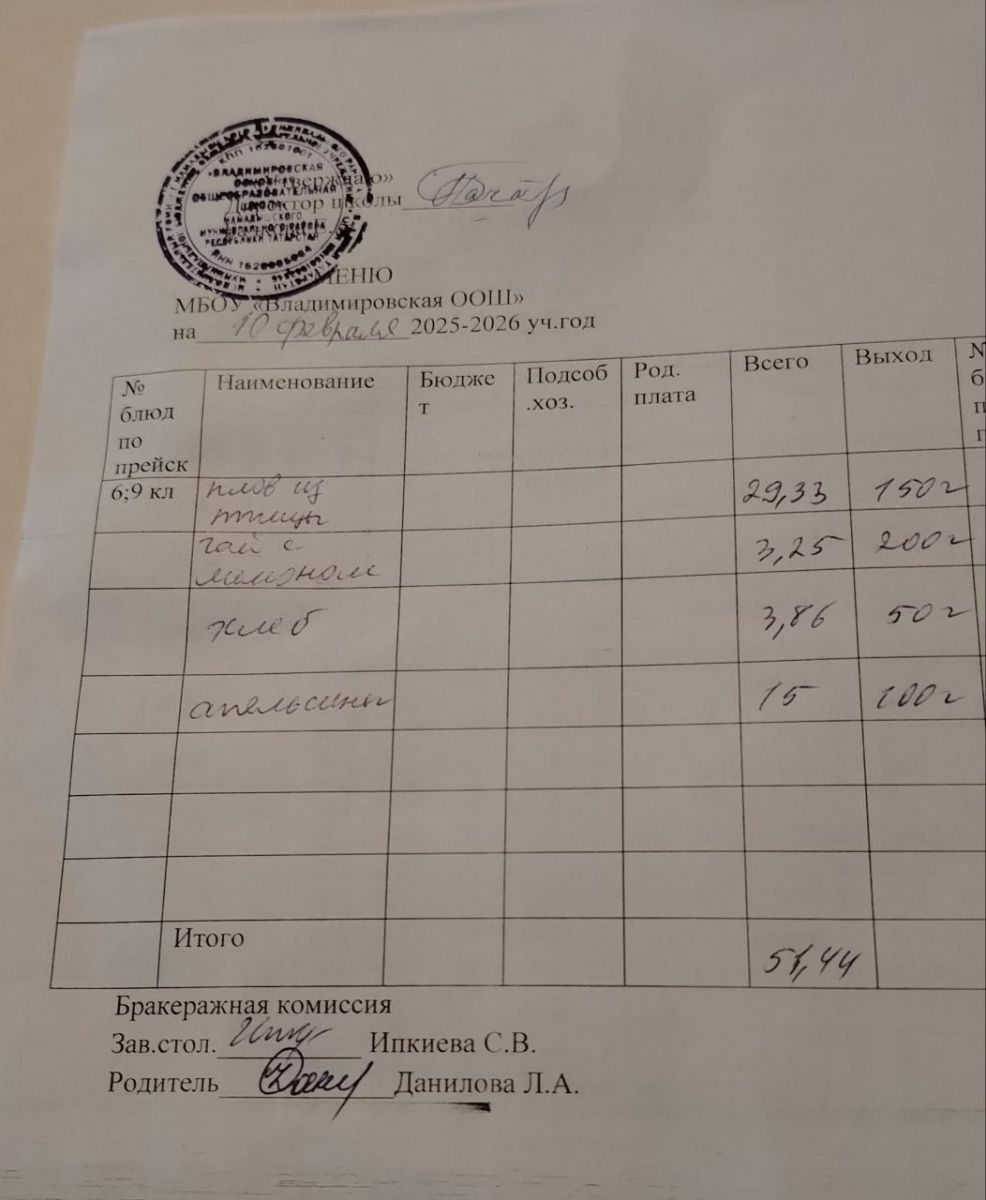 КПП 162601001
«ВЛАДИМИРОВСКАЯ
ОСНОВНАЯ
ОБЩЕОБРАЗОВАТЕЛЬНАЯ
ШКОЛА»
МАМАДЫШСКОГО
МУНИЦИПАЛЬНОГО РАЙОНА
РЕСПУБЛИКИ ТАТАРСТАН
Директор школы
МЕНЮ
МБОУ «Владимировская ООШ»
на 10 февраля 2025-2026 уч.год
№ блюд по прейск Наименование Бюджет Подсоб.хоз. Род. плата Всего Выход
6;9 кл плов из птицы 29,33 150г
чай с лимоном 3,25 200г
хлеб 3,86 50г
апельсины 15 100г
Итого 51,44
Бракеражная комиссия
Зав.стол. Ипкиева С.В.
Родитель Данилова Л.А.